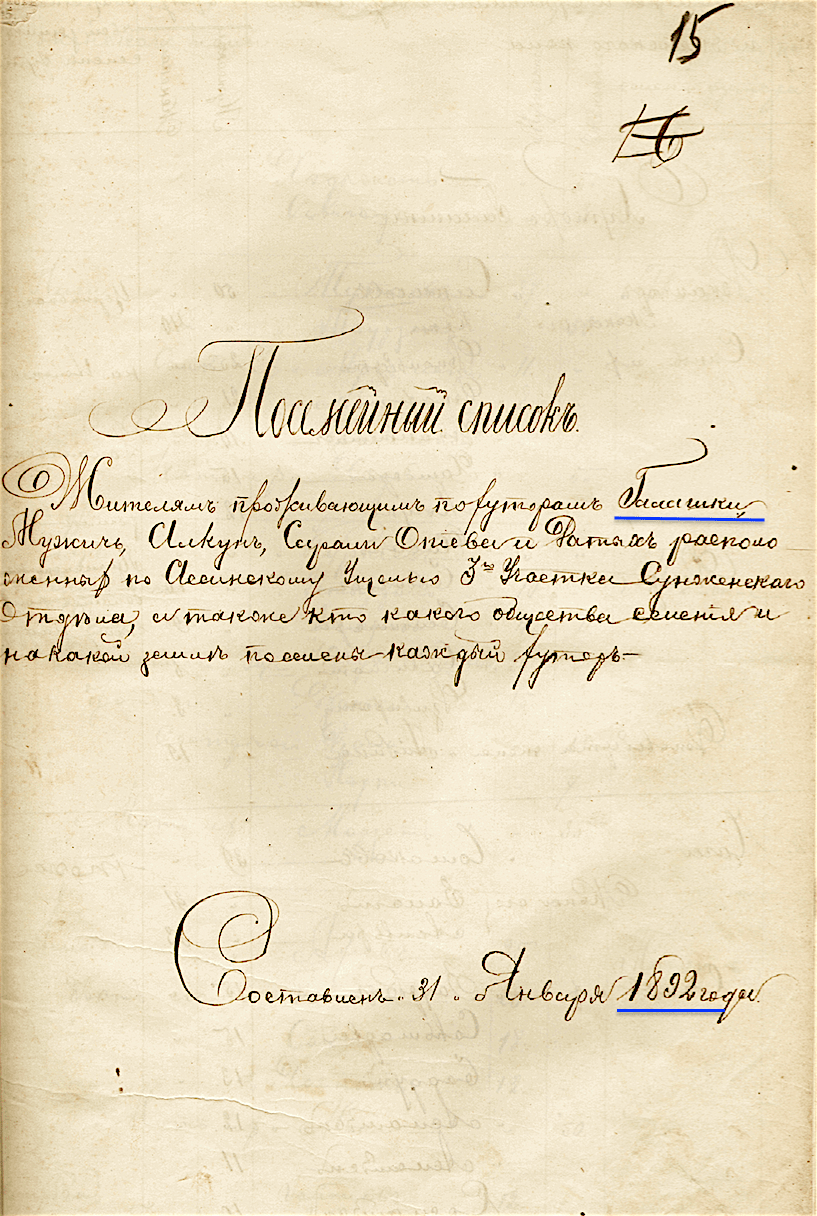 15
16
Посемейный списокъ.
Жителямъ проживающимъ по хуторамъ Галашки,
Мужичь, Алкунъ, Сарали Опіева и Датыхъ располо
женных по Ассинскому Ущелью 3го Участка Сунженскаго
Отдѣла, а также кто какого общества селенія и
на какой землѣ поселены каждый хуторъ.—
Составленъ „ 31 „ Января 1892 года.